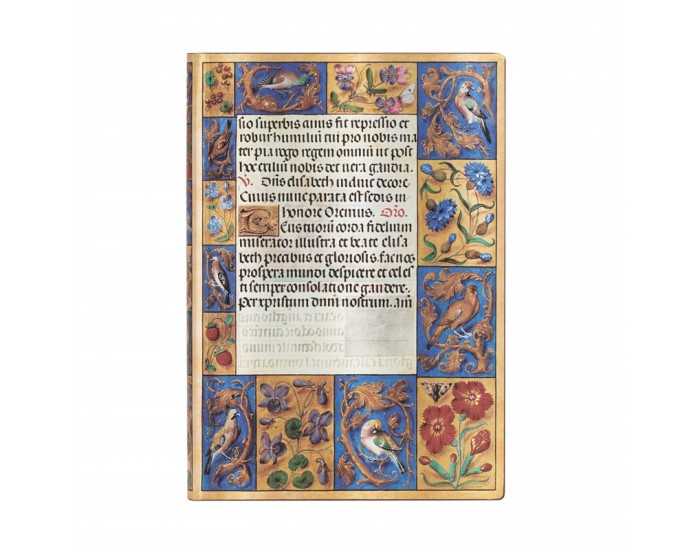 sio superbis cuius fit repressio et
robur humiliũ tui pro nobis ma
ter pia rogo regem omniũ ut post
hoc exiliũ nobis det vera gaudia.
V. Dñs elisabeth induit decore.
Cuius nunc parata est sedis in
honore Oremus. Oṙo.
Eus tuorũ corda fidelium
miserator illustra et beate elisa
beth precibus et gloriosis. fac nos
prospera mundi despicere et celes
ti semper consolatione gaudere.
Per xpristum dñm nostrum. am